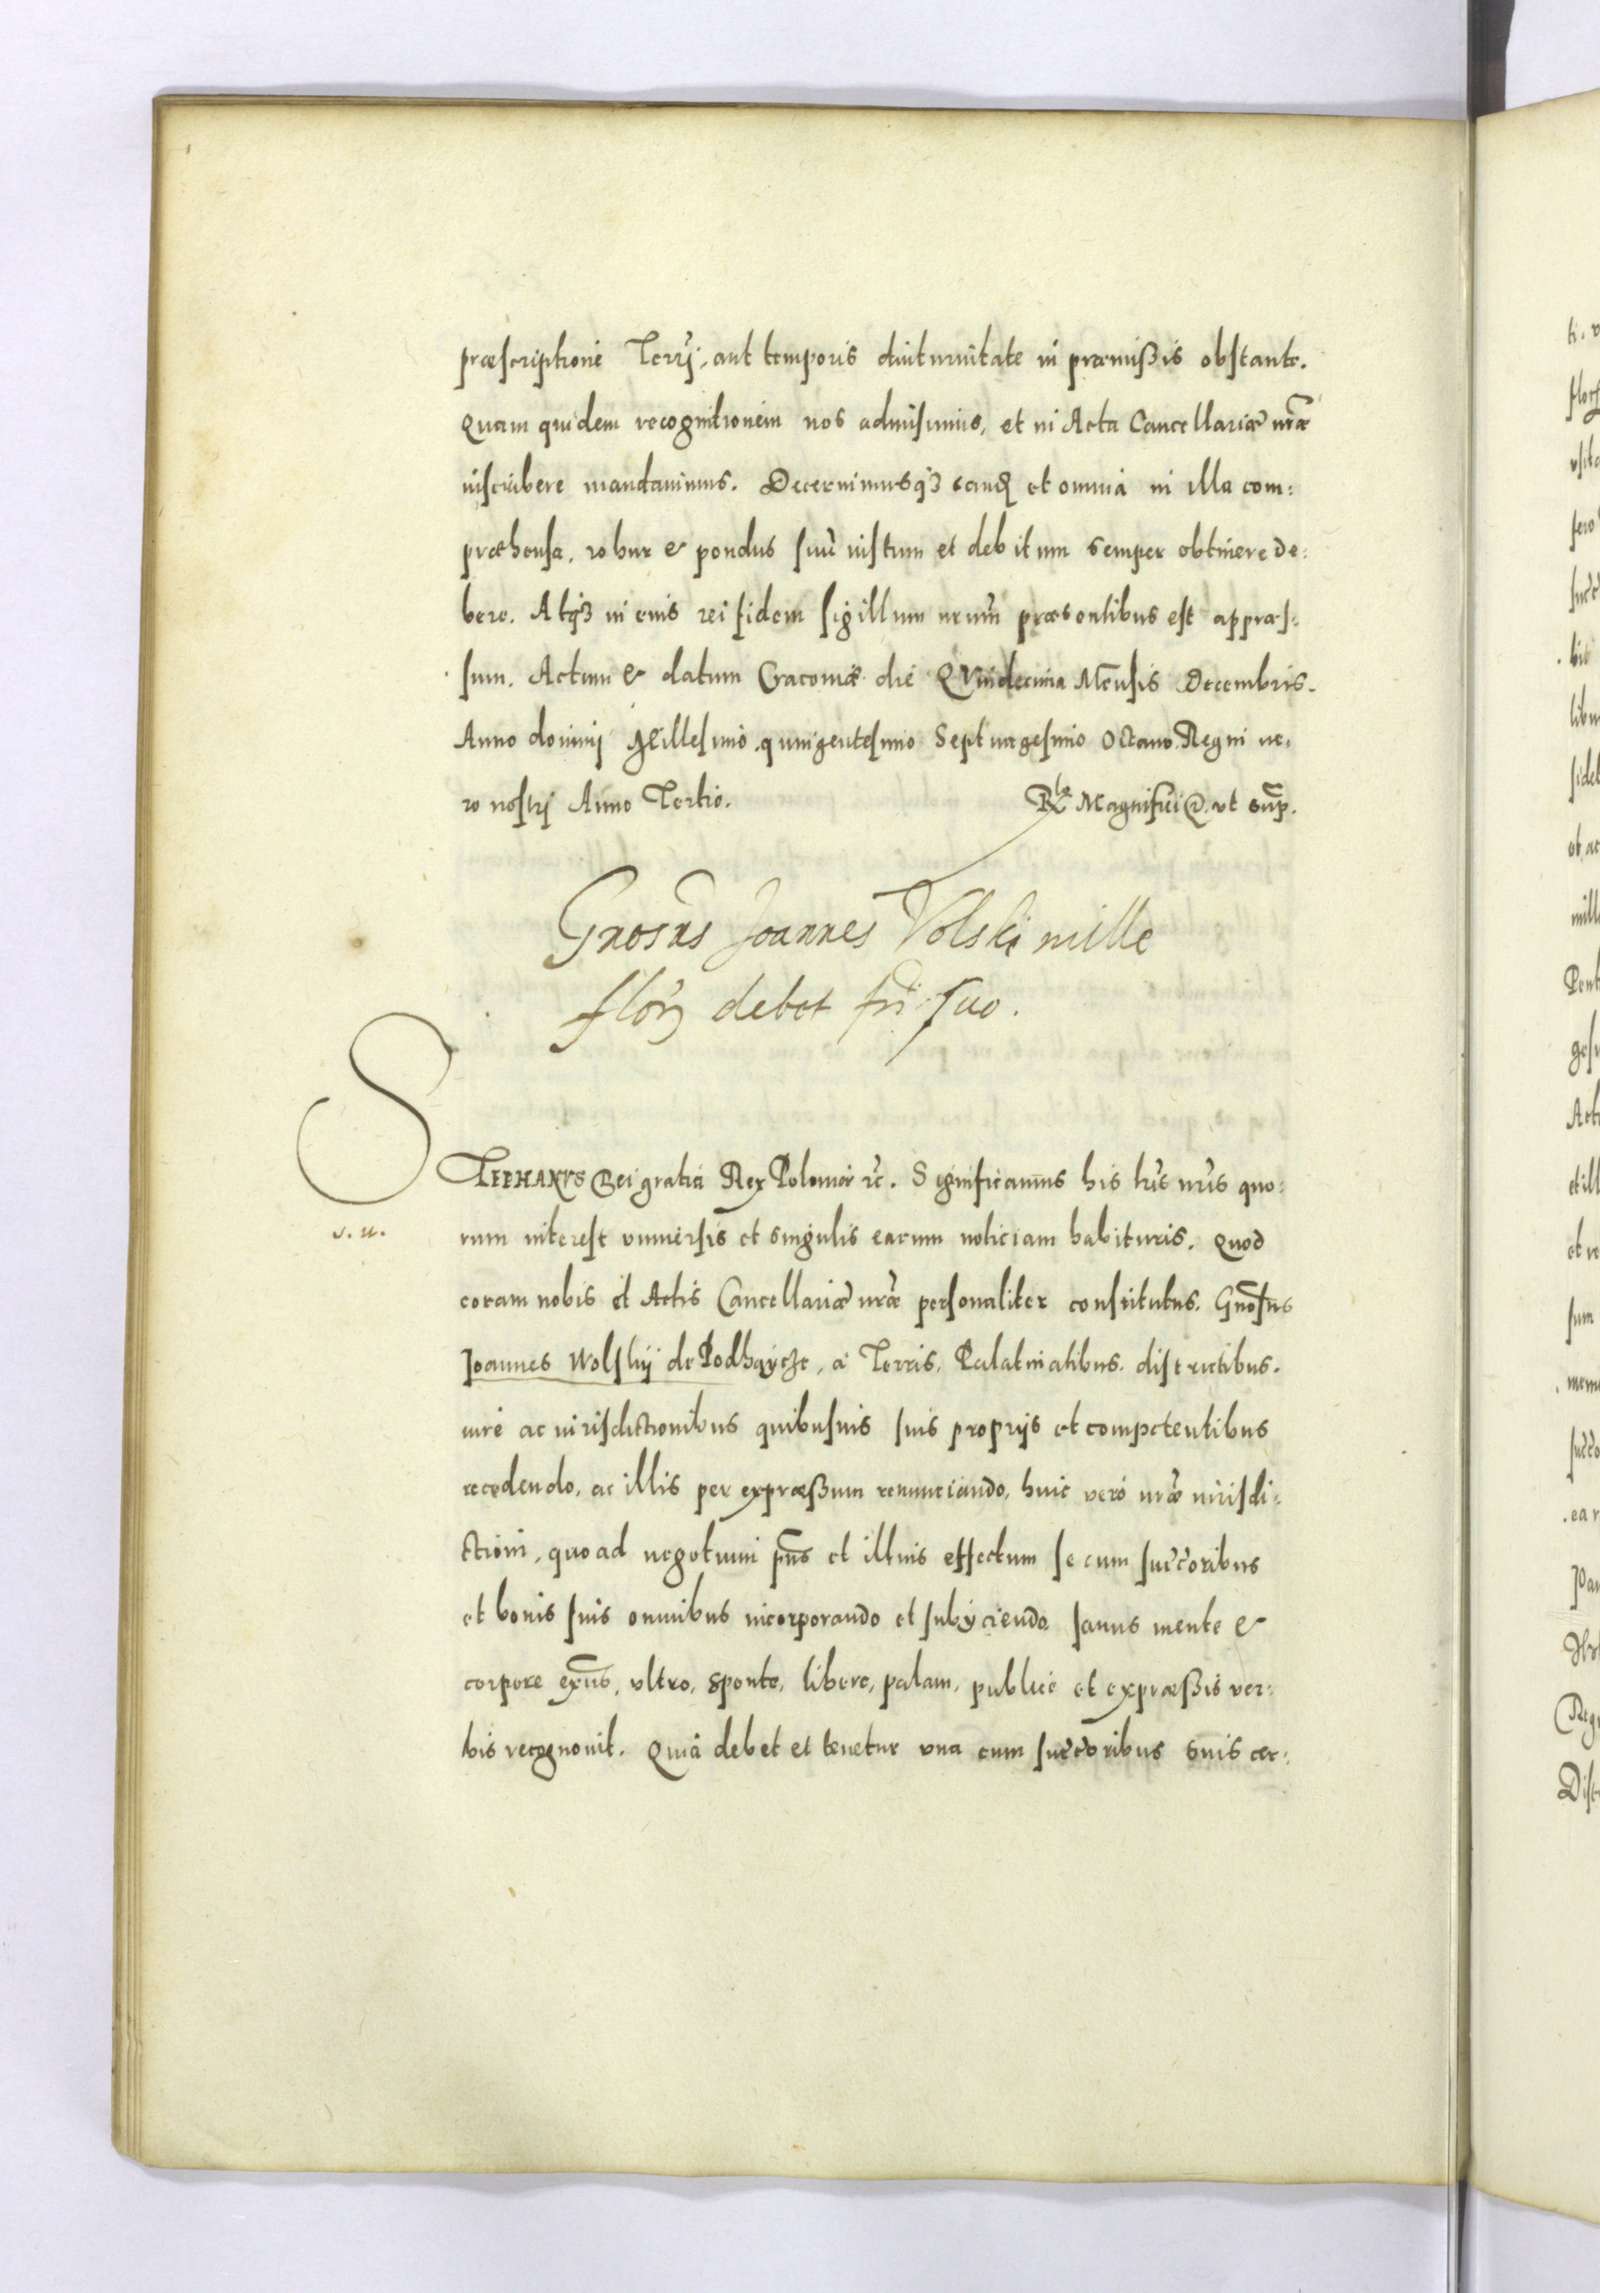 præscriptione Terrj, aut temporis diuturnitate in præmißis obstante.
Quam quidem recognitionem nos admisimus, et in Acta Cancellariæ nr̃æ
inscribere mandauimus. Decernimusqꝫ eandẽ et omnia in illa com:
præhensa, robur & pondus suũ iustum et debitum semper obtinere de:
bere. Atqꝫ in cuis rei fidem sigillum nrum̃ præsentibus est appræs:
sum. Actum & datum Cracouiæ die QVindecima Mẽnsis Decembris.
Anno dominj Millesimo quingentesimo Septuagesimo Octauo Regni ue:
ro nostrj Anno Tertio. Rlõ Magnifici @. vt sup̃.
Gnosus Joannes Volski mille
flor̃ debet fri suo.
STEPHANVS Dei gratia Rex Poloniæ ꝛc̃. Significamus his lr̃is nr̃is quo:
s. u.
rum interest vniuersis et singulis earum noticiam habituris. Quod
coram nobis et Actis Cancellariæ nr̃æ personaliter constitutus. Gnos̃us
Joannes Wolskij de Podhaycze, a Terris, Palatinatibus, districtibus.
iure ac iurisdictionibus quibusuis suis proprijs et competentibus
recedendo, ac illis per expræßum renunciando, huic vero nr̃æ iurisdi:
ctioni, quo ad negotium pñs et illius effectum se cum succ̃oribus
et bonis suis omnibus incorporando et subijciendo sanus mente &
corpore exñs, vltro, sponte, libere, palam, publice et expræßis ver:
bis recognouit. Quia debet et tenetur vna cum succ̃oribus suis cer: